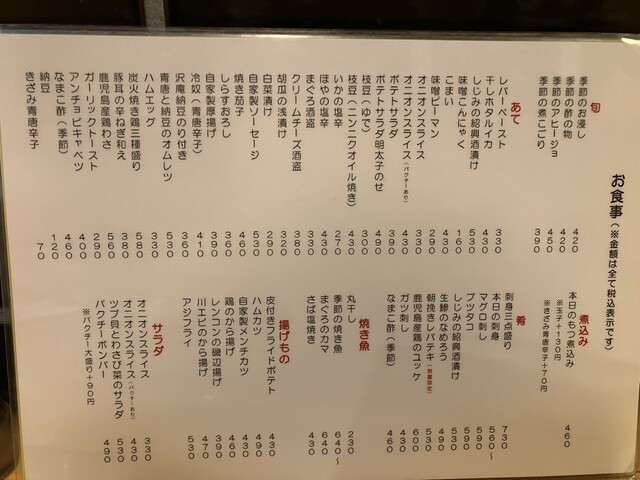 お食事（※金額は全て税込表示です）
旬
季節のお浸し 420
季節の酢の物 420
季節のアヒージョ 450
季節の煮こごり 390
あて
レバーペースト 330
干しホタルイカ 430
しじみの紹興酒漬け 530
味噌こんにゃく 160
こまい 430
味噌ピーマン 290
オニオンスライス 330
オニオンスライス（パクチーあり） 430
ポテトサラダ 430
ポテトサラダ明太子のせ 490
枝豆（ゆで） 300
枝豆（ニンニクオイル焼き） 430
いかの塩辛 270
ほやの塩辛 430
まぐろ酒盗 320
クリームチーズ酒盗 380
胡瓜の浅漬け 320
白菜漬け 290
自家製ソーセージ 530
焼き茄子 460
しらすおろし 360
自家製厚揚げ 390
冷奴（青唐辛子） 410
沢庵納豆のり付き 360
青唐と納豆のオムレツ 530
ハムエッグ 330
炭火焼き鶏三種盛り 580
豚耳の辛ねぎ和え 380
鹿児島産鶏わさ 560
ガーリックトースト 290
アンチョビキャベツ 400
なまこ酢（季節） 460
納豆 120
きざみ青唐辛子 70
煮込み
本日のもつ煮込み 460
※玉子＋130円
※きざみ青唐辛子＋70円
肴
刺身三点盛り 730
本日の刺身 560〜
マグロ刺し 590
ブツタコ 590
しじみの紹興酒漬け 530
生鯵のなめろう 490
朝挽きレバテキ（数量限定） 530
鹿児島産鶏のユッケ 600
ガツ刺し 430
なまこ刺し（季節） 460
焼き魚
丸干し 230
季節の焼き魚 640〜
まぐろのカマ 640
さば塩焼き 430
揚げもの
皮付きフライドポテト 430
ハムカツ 490
自家製メンチカツ 430
鶏のから揚げ 460
レンコンの磯辺揚げ 390
川エビのから揚げ 470
アジフライ 530
サラダ
オニオンスライス 330
オニオンスライス（パクチーあり） 430
ツブ貝とわさび菜のサラダ 530
パクチーボンバー 490
※パクチー大盛り＋90円